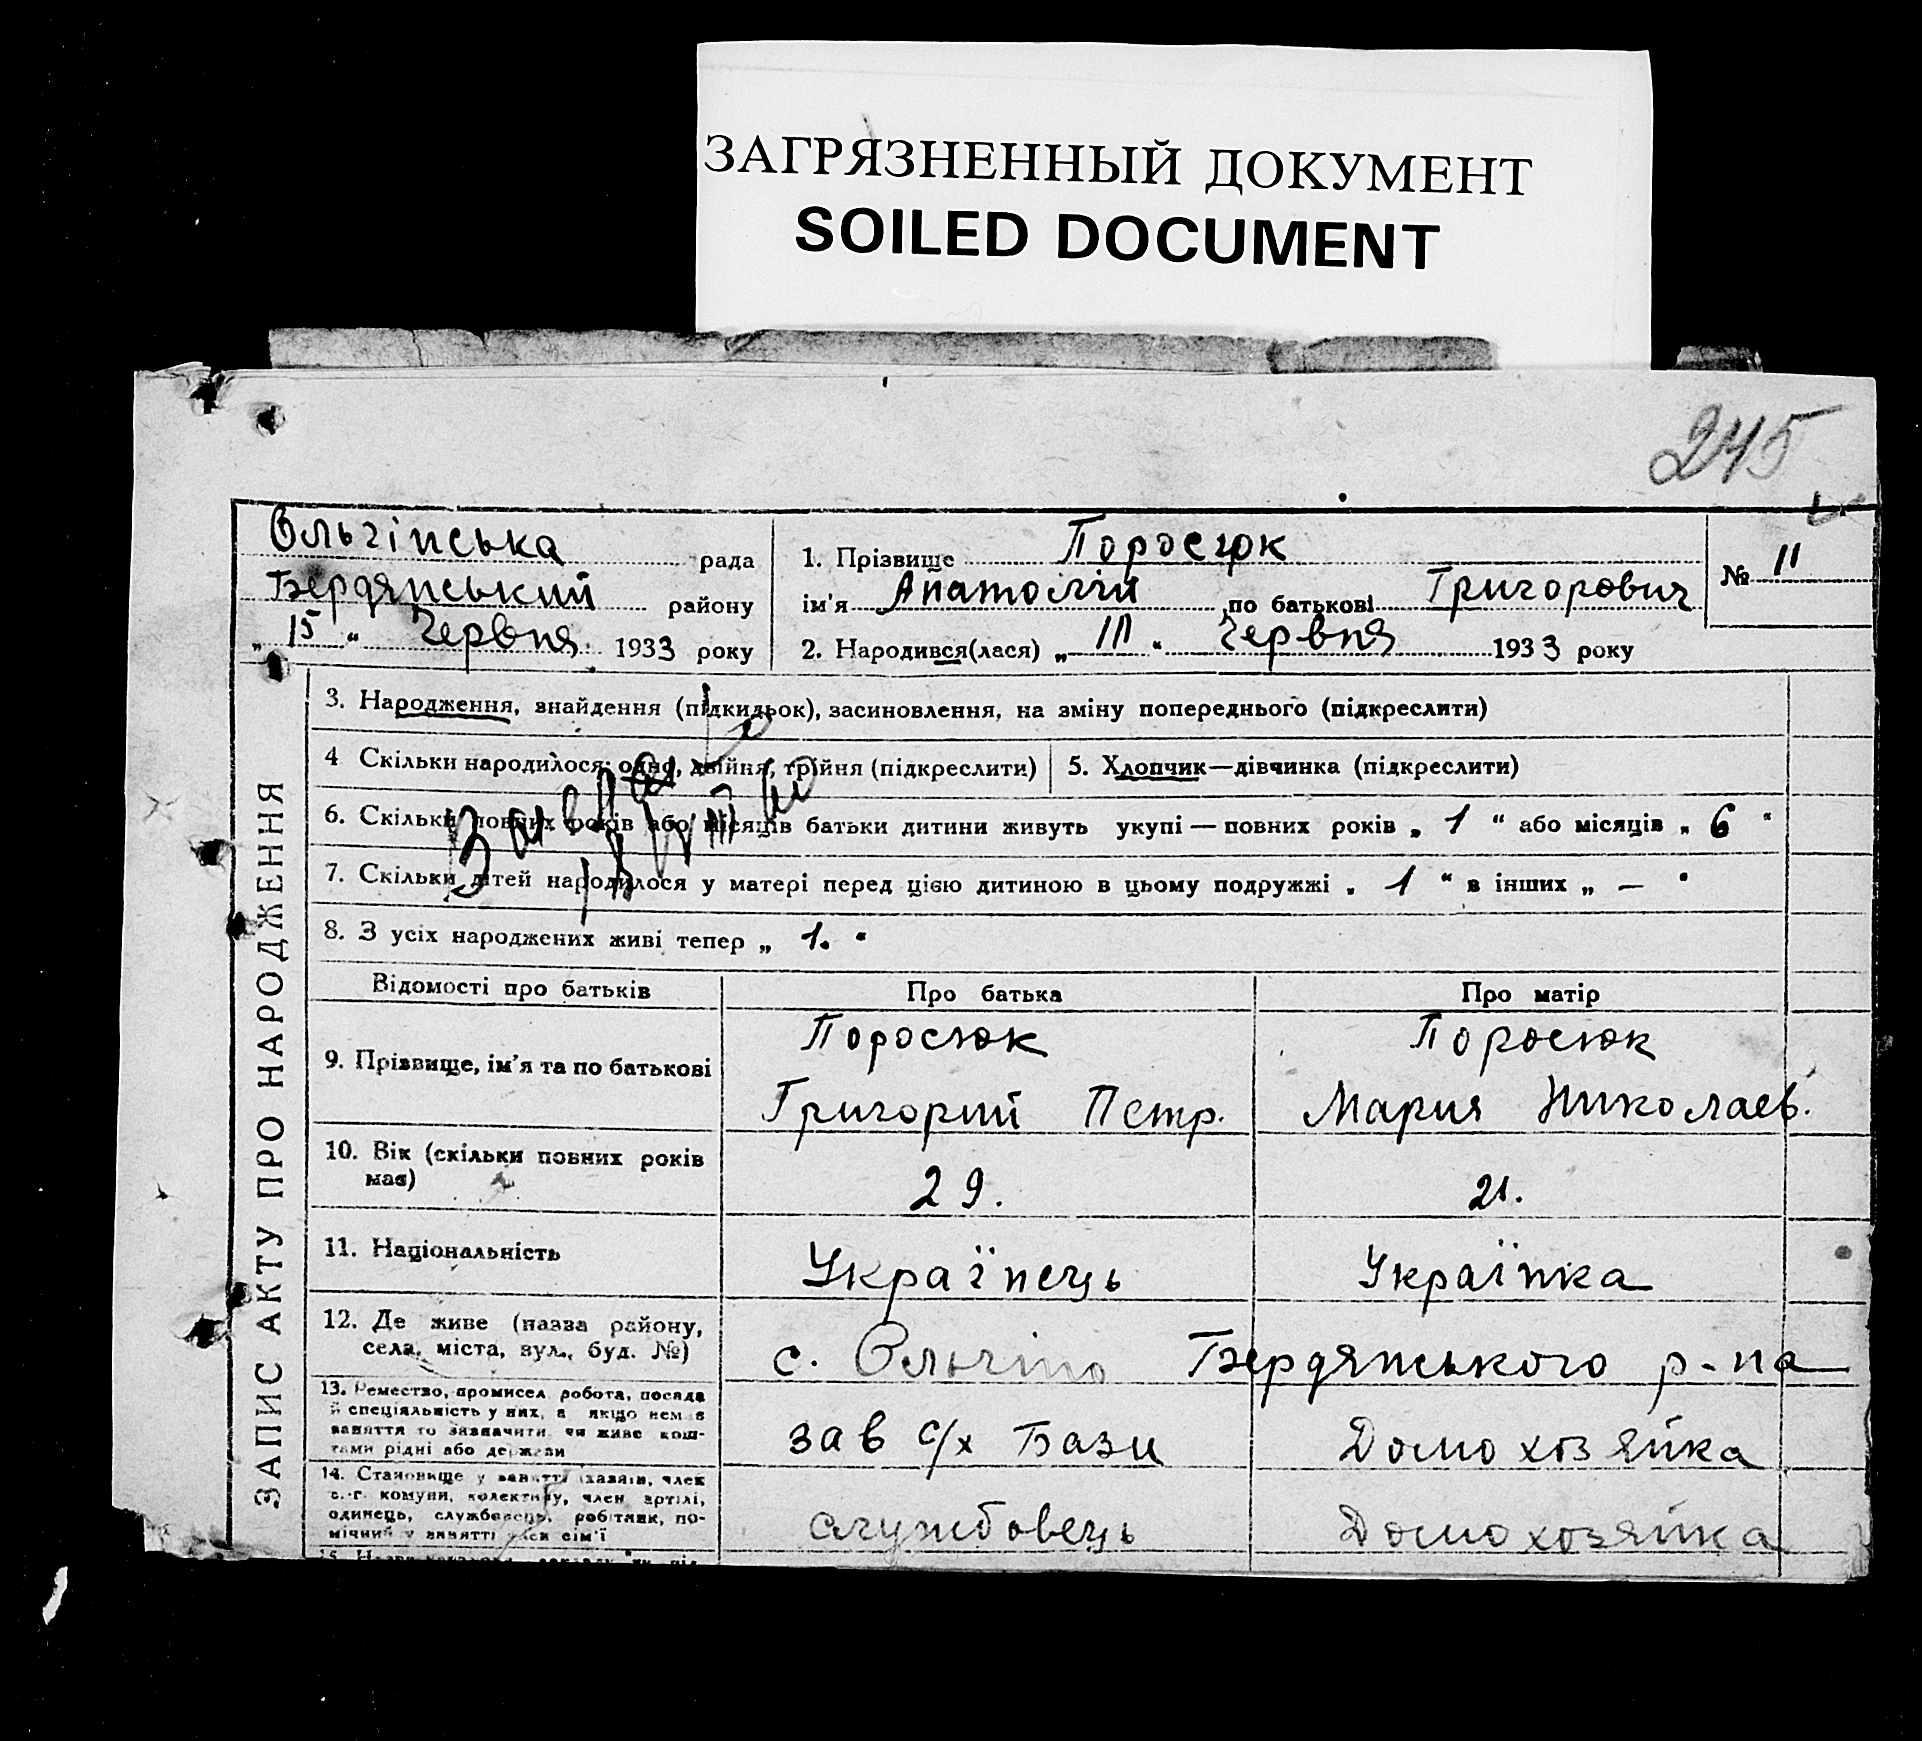 ЗАГРЯЗНЕННЫЙ ДОКУМЕНТ
SOILED DOCUMENT
245
Ольгінська рада
Бердянський району
„ 15 “ Червня 1933 року
1. Прізвище Поросюк
ім'я Анатолій по батькові Григорович
2. Народився(лася) „ “ Червня 1933 року
№ 11
ЗАПИС АКТУ ПРО НАРОДЖЕННЯ
3. Народження, знайдення (підкидьок), засиновлення, на зміну попереднього (підкреслити)
4 Скільки народилося: одно, двійня, трійня (підкреслити)
5. Хлопчик—дівчинка (підкреслити)
6. Скільки повних років або місяців батьки дитини живуть укупі — повних років „ 1 “ або місяців „ 6 “
7. Скільки дітей народилося у матері перед цією дитиною в цьому подружжі „ 1 “ в інших „ — “
8. З усіх народжених живі тепер „ 1. “
Відомості про батьків Про батька Про матір
9. Прізвище, ім'я та по батькові
Поросюк
Григорий Петр.
Поросюк
Мария Николаев.
10. Вік (скільки повних років
має)
29.
21.
11. Національність Українець Українка
12. Де живе (назва району,
села, міста, вул., буд. №)
с. Ольгіно Бердянського р-на
13. Ремество, промисел, робота, посада
й спеціяльність у них, а якщо нема
заняття то зазначити, чи живе кош-
тами рідні або держави
зав с/х Бази
Домохозяйка
14. Становище у занятті (хазяїн, член
с.-г. комуни, колективу, член артілі,
одинець, службовець, робітник, по-
мічний у занятті член сім'ї
службовець
Домохозяйка